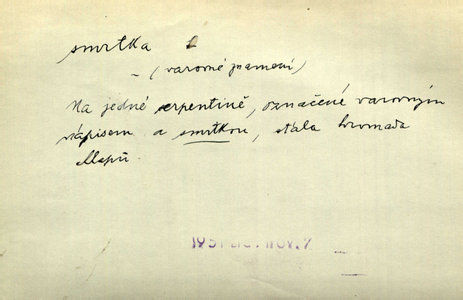 smrtka
– (varovné znamení)
Na jedné serpentině, označené varovným
nápisem a smrtkou, stála hromada
chlapů.
1951